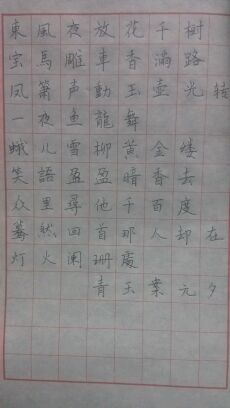 東風夜放花千樹
宝馬雕車香滿路
凤簫声動玉壺光转
一夜鱼龍舞
蛾儿雪柳黄金缕
笑語盈盈暗香去
众里尋他千百度
蓦然回首那人却在
灯火阑珊處
青玉案元夕